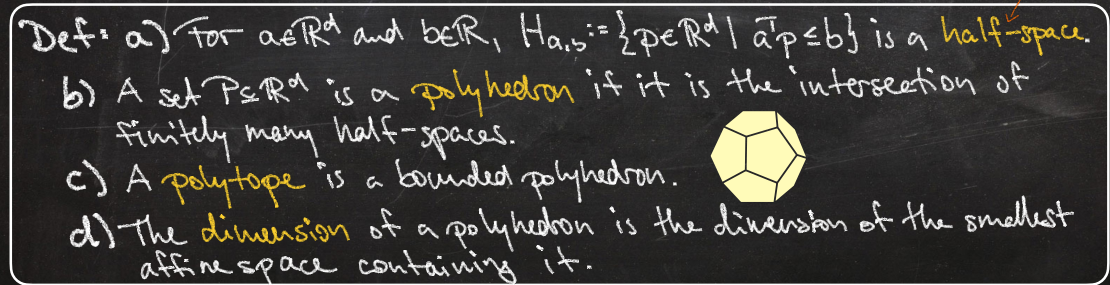 Def: a) For a∈ℝᵈ and b∈ℝ, Hₐ,b := {p∈ℝᵈ | aᵀp ≤ b} is a half-space.
b) A set P⊆ℝᵈ is a polyhedron if it is the intersection of
finitely many half-spaces.
c) A polytope is a bounded polyhedron.
d) The dimension of a polyhedron is the dimension of the smallest
affine space containing it.